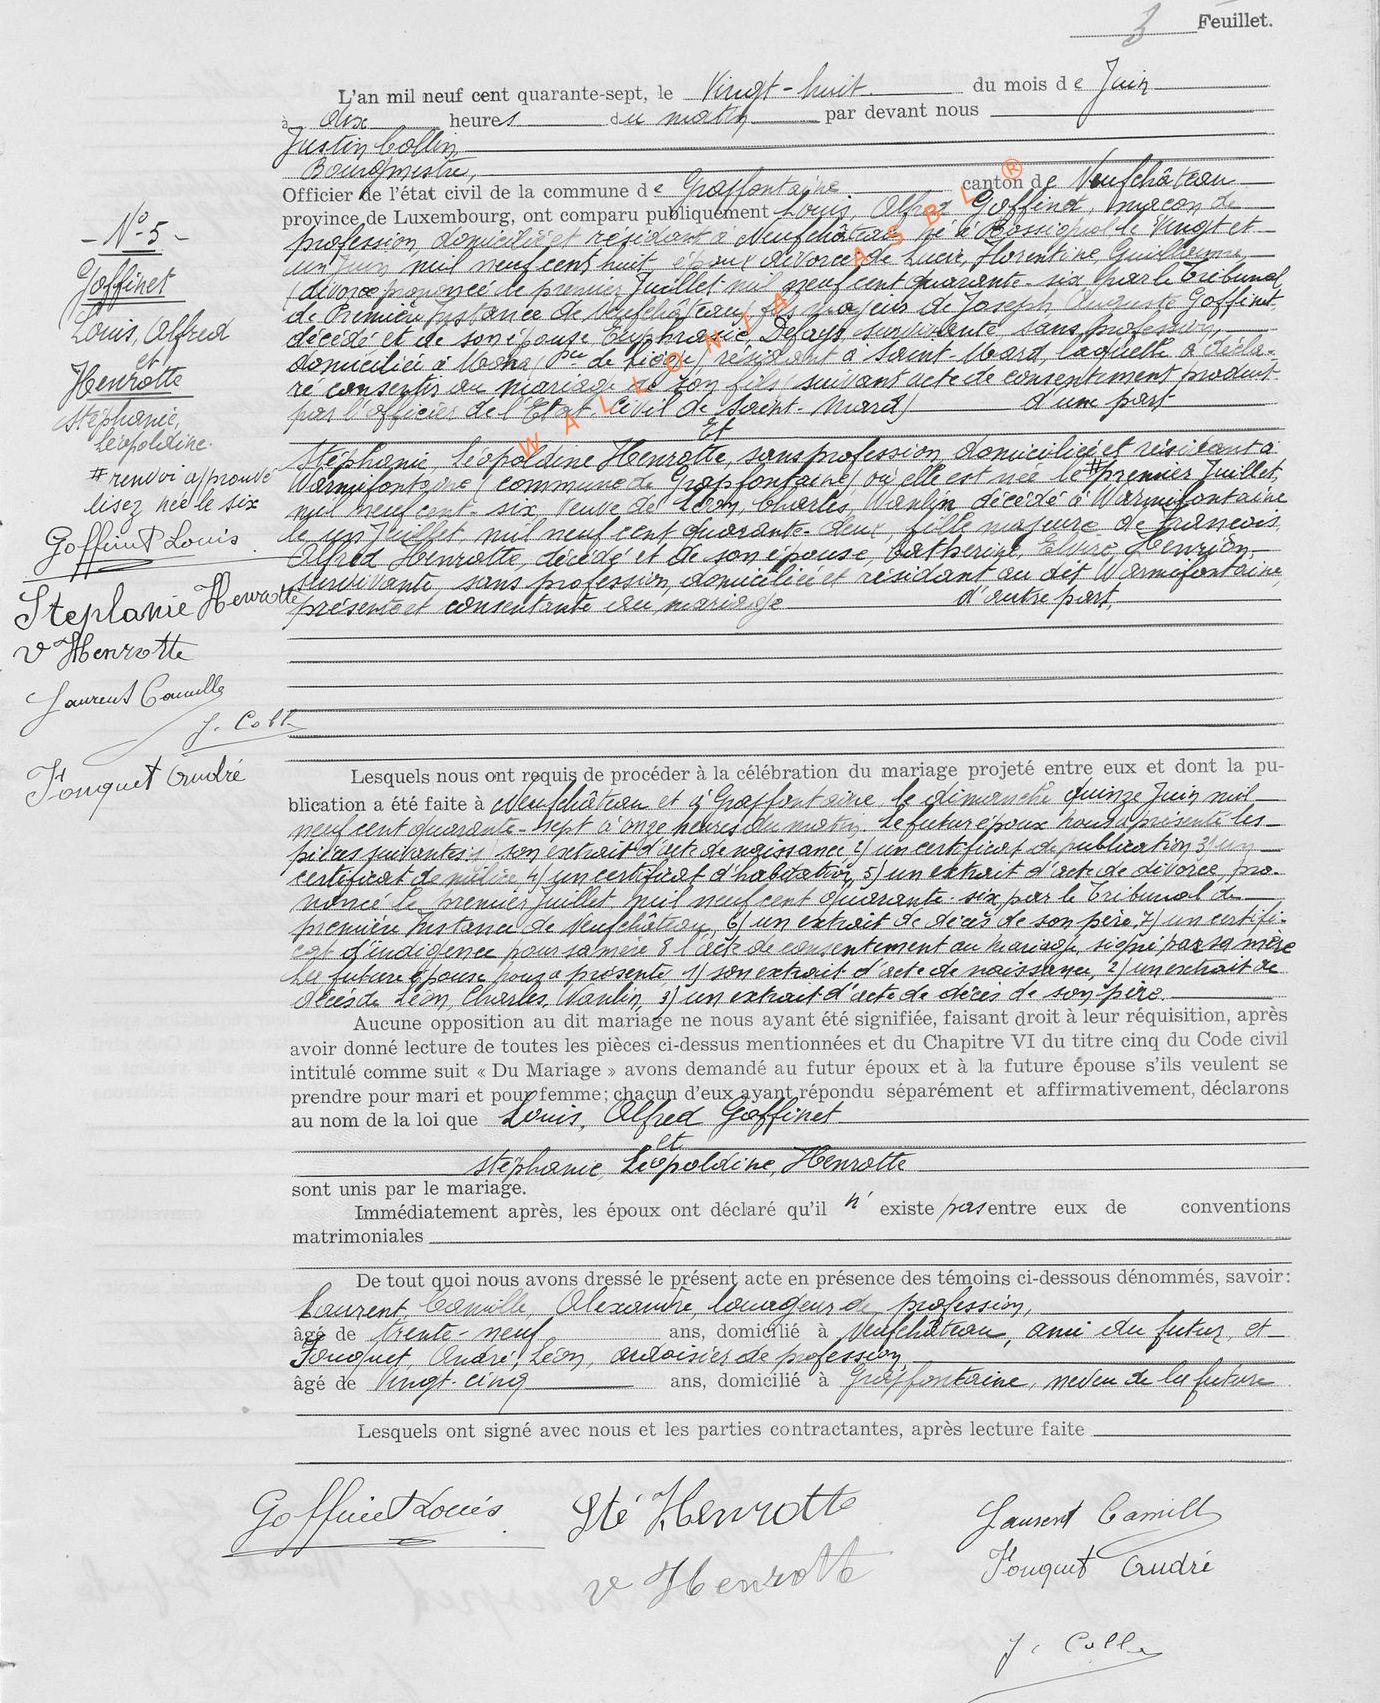 3 Feuillet.
L'an mil neuf cent quarante-sept, le Vingt-huit du mois de Juin
à dix heures du matin par devant nous
Justin Collin
Bourgmestre,
Officier de l'état civil de la commune de Grapfontaine canton de Neufchâteau
province de Luxembourg, ont comparu publiquement Louis, Alfred Goffinet, maçon de
profession, domicilié et résidant à Neufchâteau, né à Rossignol le Vingt et
un Juin mil neuf cent huit, époux divorcé de Lucie, Florentine, Guillaume,
(divorce prononcé le premier Juillet mil neuf cent quarante-six par le Tribunal
de Première Instance de Neufchâteau) fils majeur de Joseph Auguste Goffinet
décédé et de son épouse Euphrasie Delays, survivante, sans profession,
domiciliée à (pce de Liège) résidant à Saint-Mard, laquelle a décla-
ré consentir au mariage de son fils (suivant acte de consentement produit
par l'officier de l'Etat-Civil de Saint-Mard) d'une part
Et
Stéphanie, Léopoldine Henrotte, sans profession, domiciliée et résidant à
Warmifontaine (commune de Grapfontaine) où elle est née le # premier Juillet,
mil neuf cent six, veuve de Léon, Charles, Wanlin, décédé à Warmifontaine
le un Juillet mil neuf cent quarante-deux, fille majeure de François
Alfred Henrotte, décédé et de son épouse, Catherine, Elvire, Henrion,
survivante, sans profession, domiciliée et résidant au dit Warmifontaine,
présente et consentante au mariage d'autre part,
- N° 5 -
Goffinet
Louis, Alfred
et
Henrotte
Stéphanie,
Léopoldine.
# renvoi approuvé
lisez née le six
Goffinet Louis
Stephanie Henrotte
v Henrotte
Laurent Camille
J. Coll
Fouquet André
Lesquels nous ont requis de procéder à la célébration du mariage projeté entre eux et dont la pu-
blication a été faite à Neufchâteau et à Grapfontaine le dimanche quinze Juin mil
neuf cent quarante-sept à onze heures du matin. Le futur époux nous a présenté les
pièces suivantes 1) son extrait d'acte de naissance 2) un certificat de publication 3) un
certificat de milice, 4) un certificat d'habitation, 5) un extrait d'acte de divorce, pro-
noncé le premier Juillet mil neuf cent quarante-six, par le Tribunal de
première Instance de Neufchâteau, 6) un extrait de décès de son père, 7) un certifi-
cat d'indigence pour sa mère 8 l'acte de consentement au mariage, signé par sa mère
La future épouse nous a présenté 1) son extrait d'acte de naissance, 2) un extrait de
décès de Léon, Charles, Wanlin, 3) un extrait d'acte de décès de son père.
Aucune opposition au dit mariage ne nous ayant été signifiée, faisant droit à leur réquisition, après
avoir donné lecture de toutes les pièces ci-dessus mentionnées et du Chapitre VI du titre cinq du Code civil
intitulé comme suit « Du Mariage » avons demandé au futur époux et à la future épouse s'ils veulent se
prendre pour mari et pour femme; chacun d'eux ayant répondu séparément et affirmativement, déclarons
au nom de la loi que Louis, Alfred Goffinet
et
Stéphanie, Léopoldine, Henrotte
sont unis par le mariage.
Immédiatement après, les époux ont déclaré qu'il n' existe pas entre eux de conventions
matrimoniales
De tout quoi nous avons dressé le présent acte en présence des témoins ci-dessous dénommés, savoir:
Laurent, Camille, Alexandre, louageur de profession,
âgé de trente-neuf ans, domicilié à Neufchâteau, ami du futur, et
Fouquet, André, Léon, ardoisier de profession,
âgé de Vingt-cinq ans, domicilié à Grapfontaine, neveu de la future
Lesquels ont signé avec nous et les parties contractantes, après lecture faite
Goffinet Louis Sté Henrotte Laurent Camille
v Henrotte Fouquet André
J. Coll
WALLONIA ASBL ®